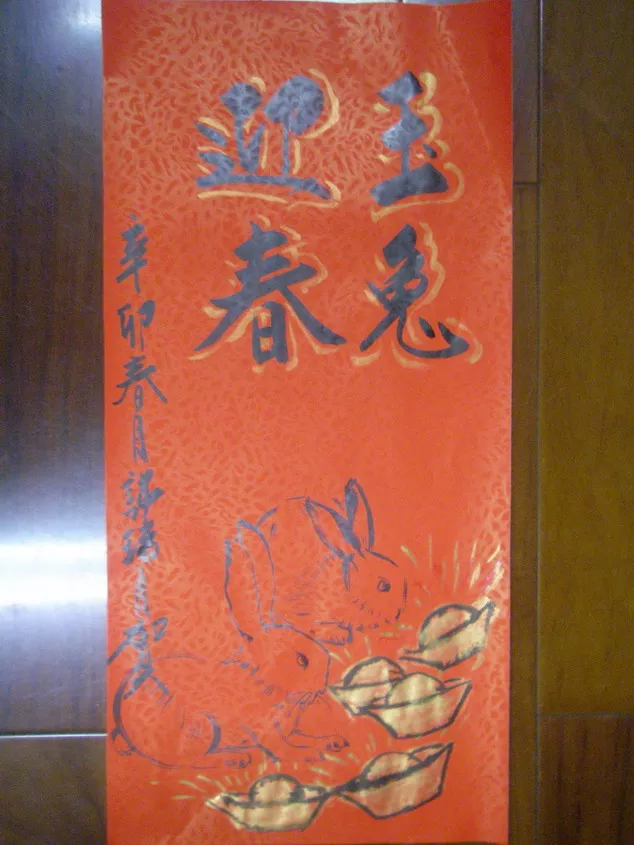 玉兔
迎春
辛卯春月郭
賀